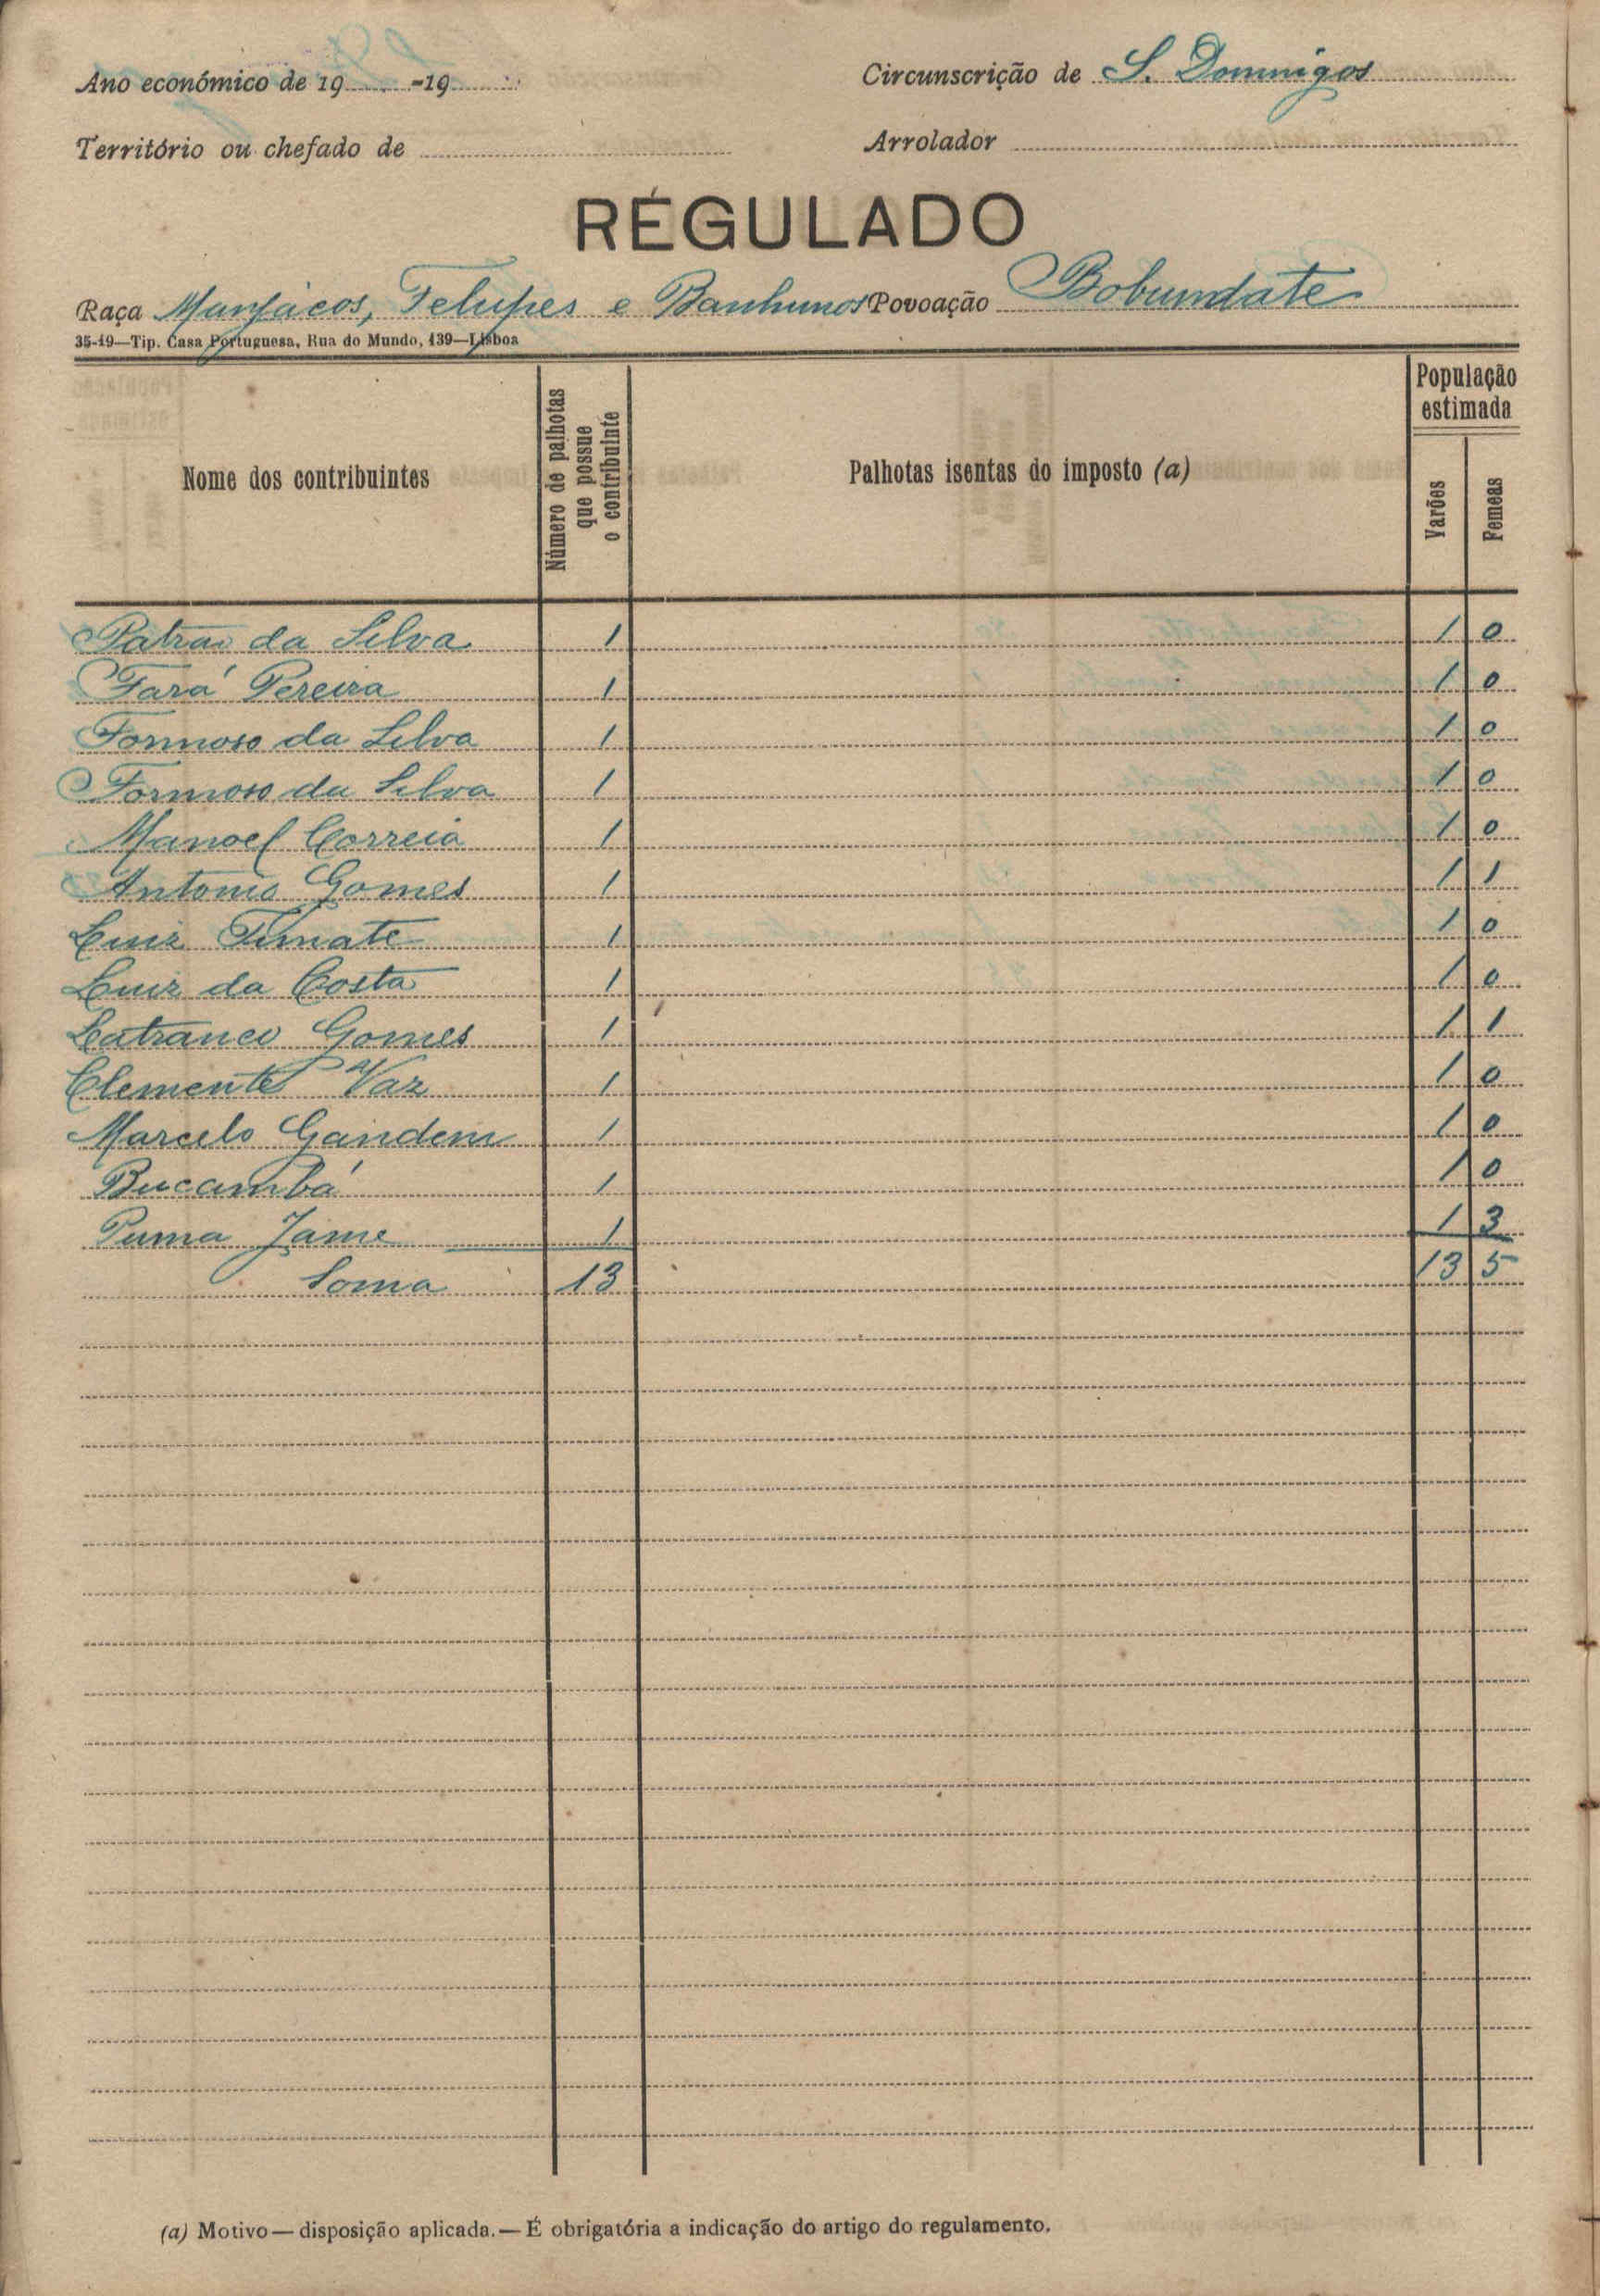 Ano económico de 19 -19
Circunscrição de S. Domingos
Território ou chefado de
Arrolador
RÉGULADO
Raça Manjácos, Felupes e Banhunos Povoação Bobumdate
35-19—Tip. Casa Portuguesa, Rua do Mundo, 139—Lisboa
Nome dos contribuintes
Número de palhotas que possue o contribuinte
Palhotas isentas do imposto (a)
População estimada
Varões
Femeas
Patrão da Silva 1 1 0
Fará Pereira 1 1 0
Formoso da Silva 1 1 0
Formoso da Silva 1 1 0
Manoel Correia 1 1 0
Antonio Gomes 1 1 1
Luiz Timate 1 1 0
Luiz da Costa 1 1 0
Latranco Gomes 1 1 1
Clemente Vaz 1 1 0
Marcelo Gandem 1 1 0
Bucambá 1 1 0
Puma Jame 1 1 3
Soma 13 13 5
(a) Motivo— disposição aplicada.— É obrigatória a indicação do artigo do regulamento.